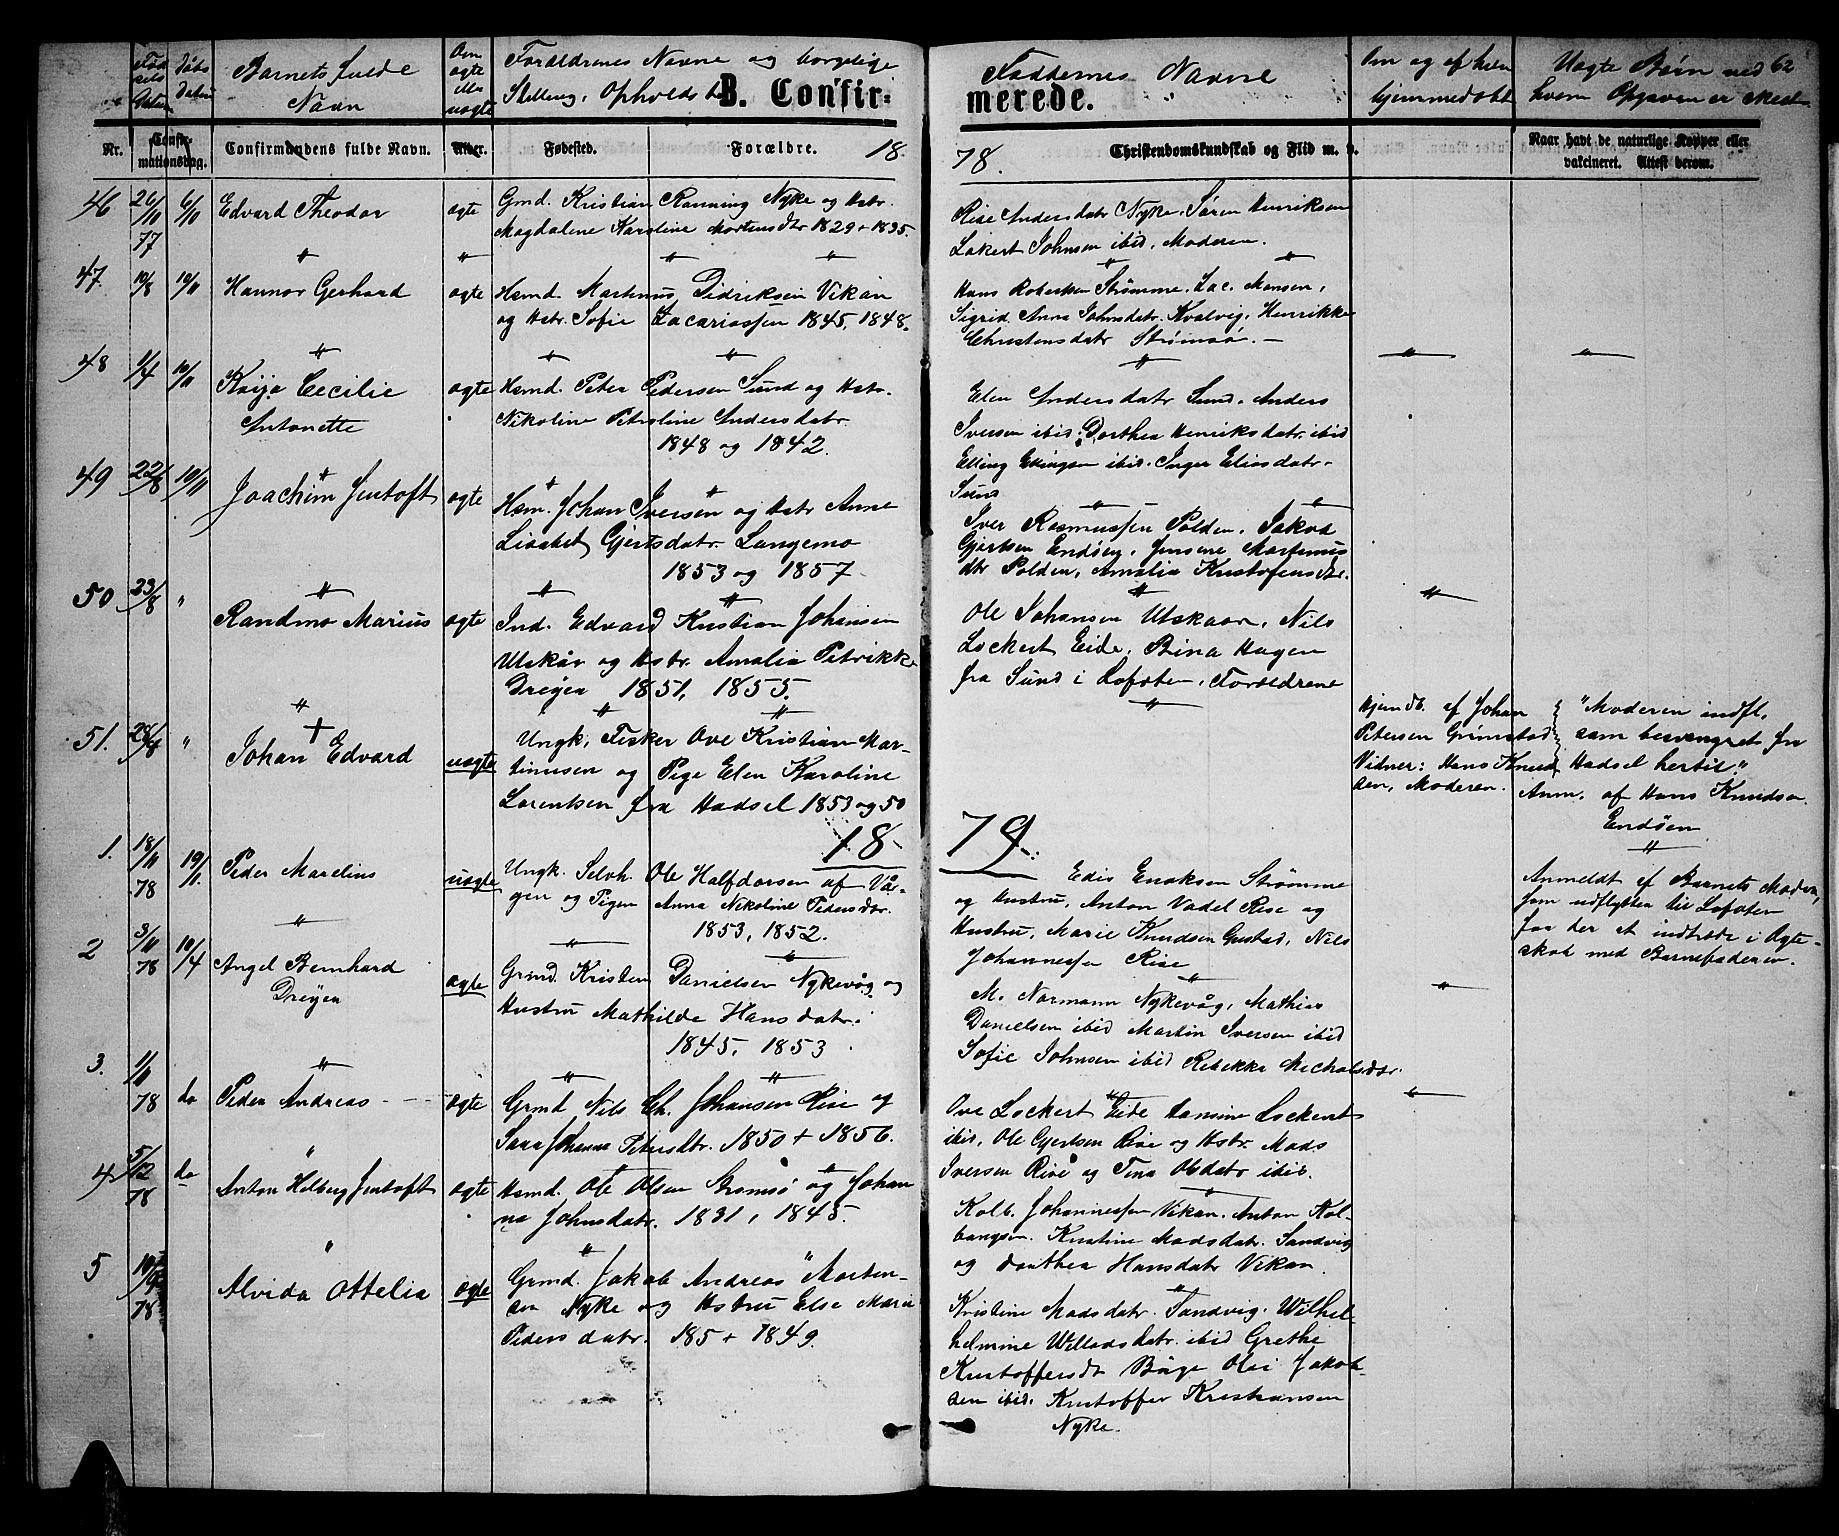 Barnets fulde
Navn
Forældrenes Navne og borgelige
Stilling, Opholdsted
B. Confir-
Faddernes Navne
merede.
Om og af hvem
hjemmedøbt
Uægte Børn ved 62
hvem Opgaven er skeet
Nr.
Confir-
mationsdag.
Confirmandens fulde Navn.
Alder.
Fødested.
Forældre.
18
78.
Christendomskundskab og Flid m. v.
Naar havt de naturlige Kopper eller
vakcineret. Attest derom.
46 26/10 77 6/11 Edvard Theodor ægte Gmd. Kristian Rønning Nyke og Hstr.
Magdalene Karoline Mortensdtr 1829 + 1835.
Rise Andersdatr Nyke. Søren Henriksen
Lokert Johnsen ibid, Moderen.
47 10/8 10/11 Hannor Gerhard ægte Hsmd. Martinus Didriksen Vikan
og Hstr. Sofie Zacariassen 1845, 1848.
Hans Robertsen Strømme. Zac. Monsen,
Sigrid Anna Johnsdatr. Kvalvig, Henrikke
Christensdatr Strømsø.
48 1/4 10/11 Kaija Cecilie
Antonette
ægte Hsmd. Peter Pedersen Sund og Hstr.
Nikoline Petroline Andersdatr.
1848 og 1842.
Elen Andersdatr Sund. Anders
Iversen ibid. Dorthea Henriksdatr. ibid
Elling Ellingsen ibid. Inger Eliasdatr.
Sund
49 22/8 10/11 Joachim Jentoft ægte Hsm. Johan Iversen og Hstr Anne
Lisabet Gjertsdatr. Langemo
1853 og 1857.
Iver Rasmussen Polden, Jakob
Gjertsen Endøen, Jensene Martinus
dtr Polden, Amalia Kristofersdtr.
50 23/8 " Randmo Marius ægte Ind. Edvard Kristian Johansen
Utskår og Hstr. Amalia Petrikke
Dreyer 1851, 1855.
Ole Johansen Utskaar, Nils
Lockert Eide, Bina Hagen
fra Sund i Lofoten. Forældrene
51. 28/4 " Johan Edvard uægte Ungk. Fisker Ove Kristian Mar-
tinusen og Pige Elen Karoline
Lorentsen fra Hadsel 1853 og 50
Hjemdb. af Johan
Petersen Grimstad
Vidner: Hans Knud
sen, Moderen.
"Moderen indfl.
som besvangret fra
Hadsel hertil."
Anm. af Hans Knudsen
Endøen
18
79.
1. 18/11 78 19/1. Peder Marelius uægte Ungk. Selvh. Ole Halfdorsen af Vå-
gen og Pigen Anna Nikoline Pedersdtr.
1853, 1852.
Edis Enoksen Strømme
og Hustru, Anton Vadel Rise og
Hustru, Marie Knudsen Gustad, Nils
Johannessen Rise
Anmeldt af Barnets Moder,
som udflytter til Lofoten
for der at indtræde i Ægte-
skab med Barnefaderen.
2 3/11 78 10/4 Angel Bernhard
Dreyer
ægte Grmd. Kristen Danielsen Nykevåg og
Hustru Mathilde Hansdatr.
1845, 1853
M. Normann Nykevåg, Mathias
Danielsen ibid Martin Iversen ibid
Sofie Johnsen ibid Rebekka Micholsdtr.
3. 1/11 78 do Peder Andreas ægte Grmd Nils Ch. Johansen Rise og
Sara Johanna Petersdtr. 1850 + 1856.
Ove Lockert Eide Hansine Lockert
ibid, Ole Gjertsen Rise og Hstr. Mads
Iversen Rise og Tina Olsdatr ibid.
4 5/12 78 do Anton Hilberg Jentoft ægte Hsmd. Ole Olsen Strømsø og Johan
na Johnsdatr. 1831, 1845.
Kolb. Johannessen Vikan. Anton Kol-
bangsen. Kristine Madsdatr. Sandvig
og Dorthea Hansdatr Vikan.
5 78 Alvida Ottelia ægte Grmd. Jakob Andreas Morten-
sen Nyke og Hstru Else Marie
Pedersdatr. 185 + 1849.
Kristine Madsdatr. Sandvig. Wilhel-
helmine Willadsdatr. ibid Grethe
Kristoffersdt Børge Olai Jakob
sen ibid. Kristoffer Kristiansen
Nyke.